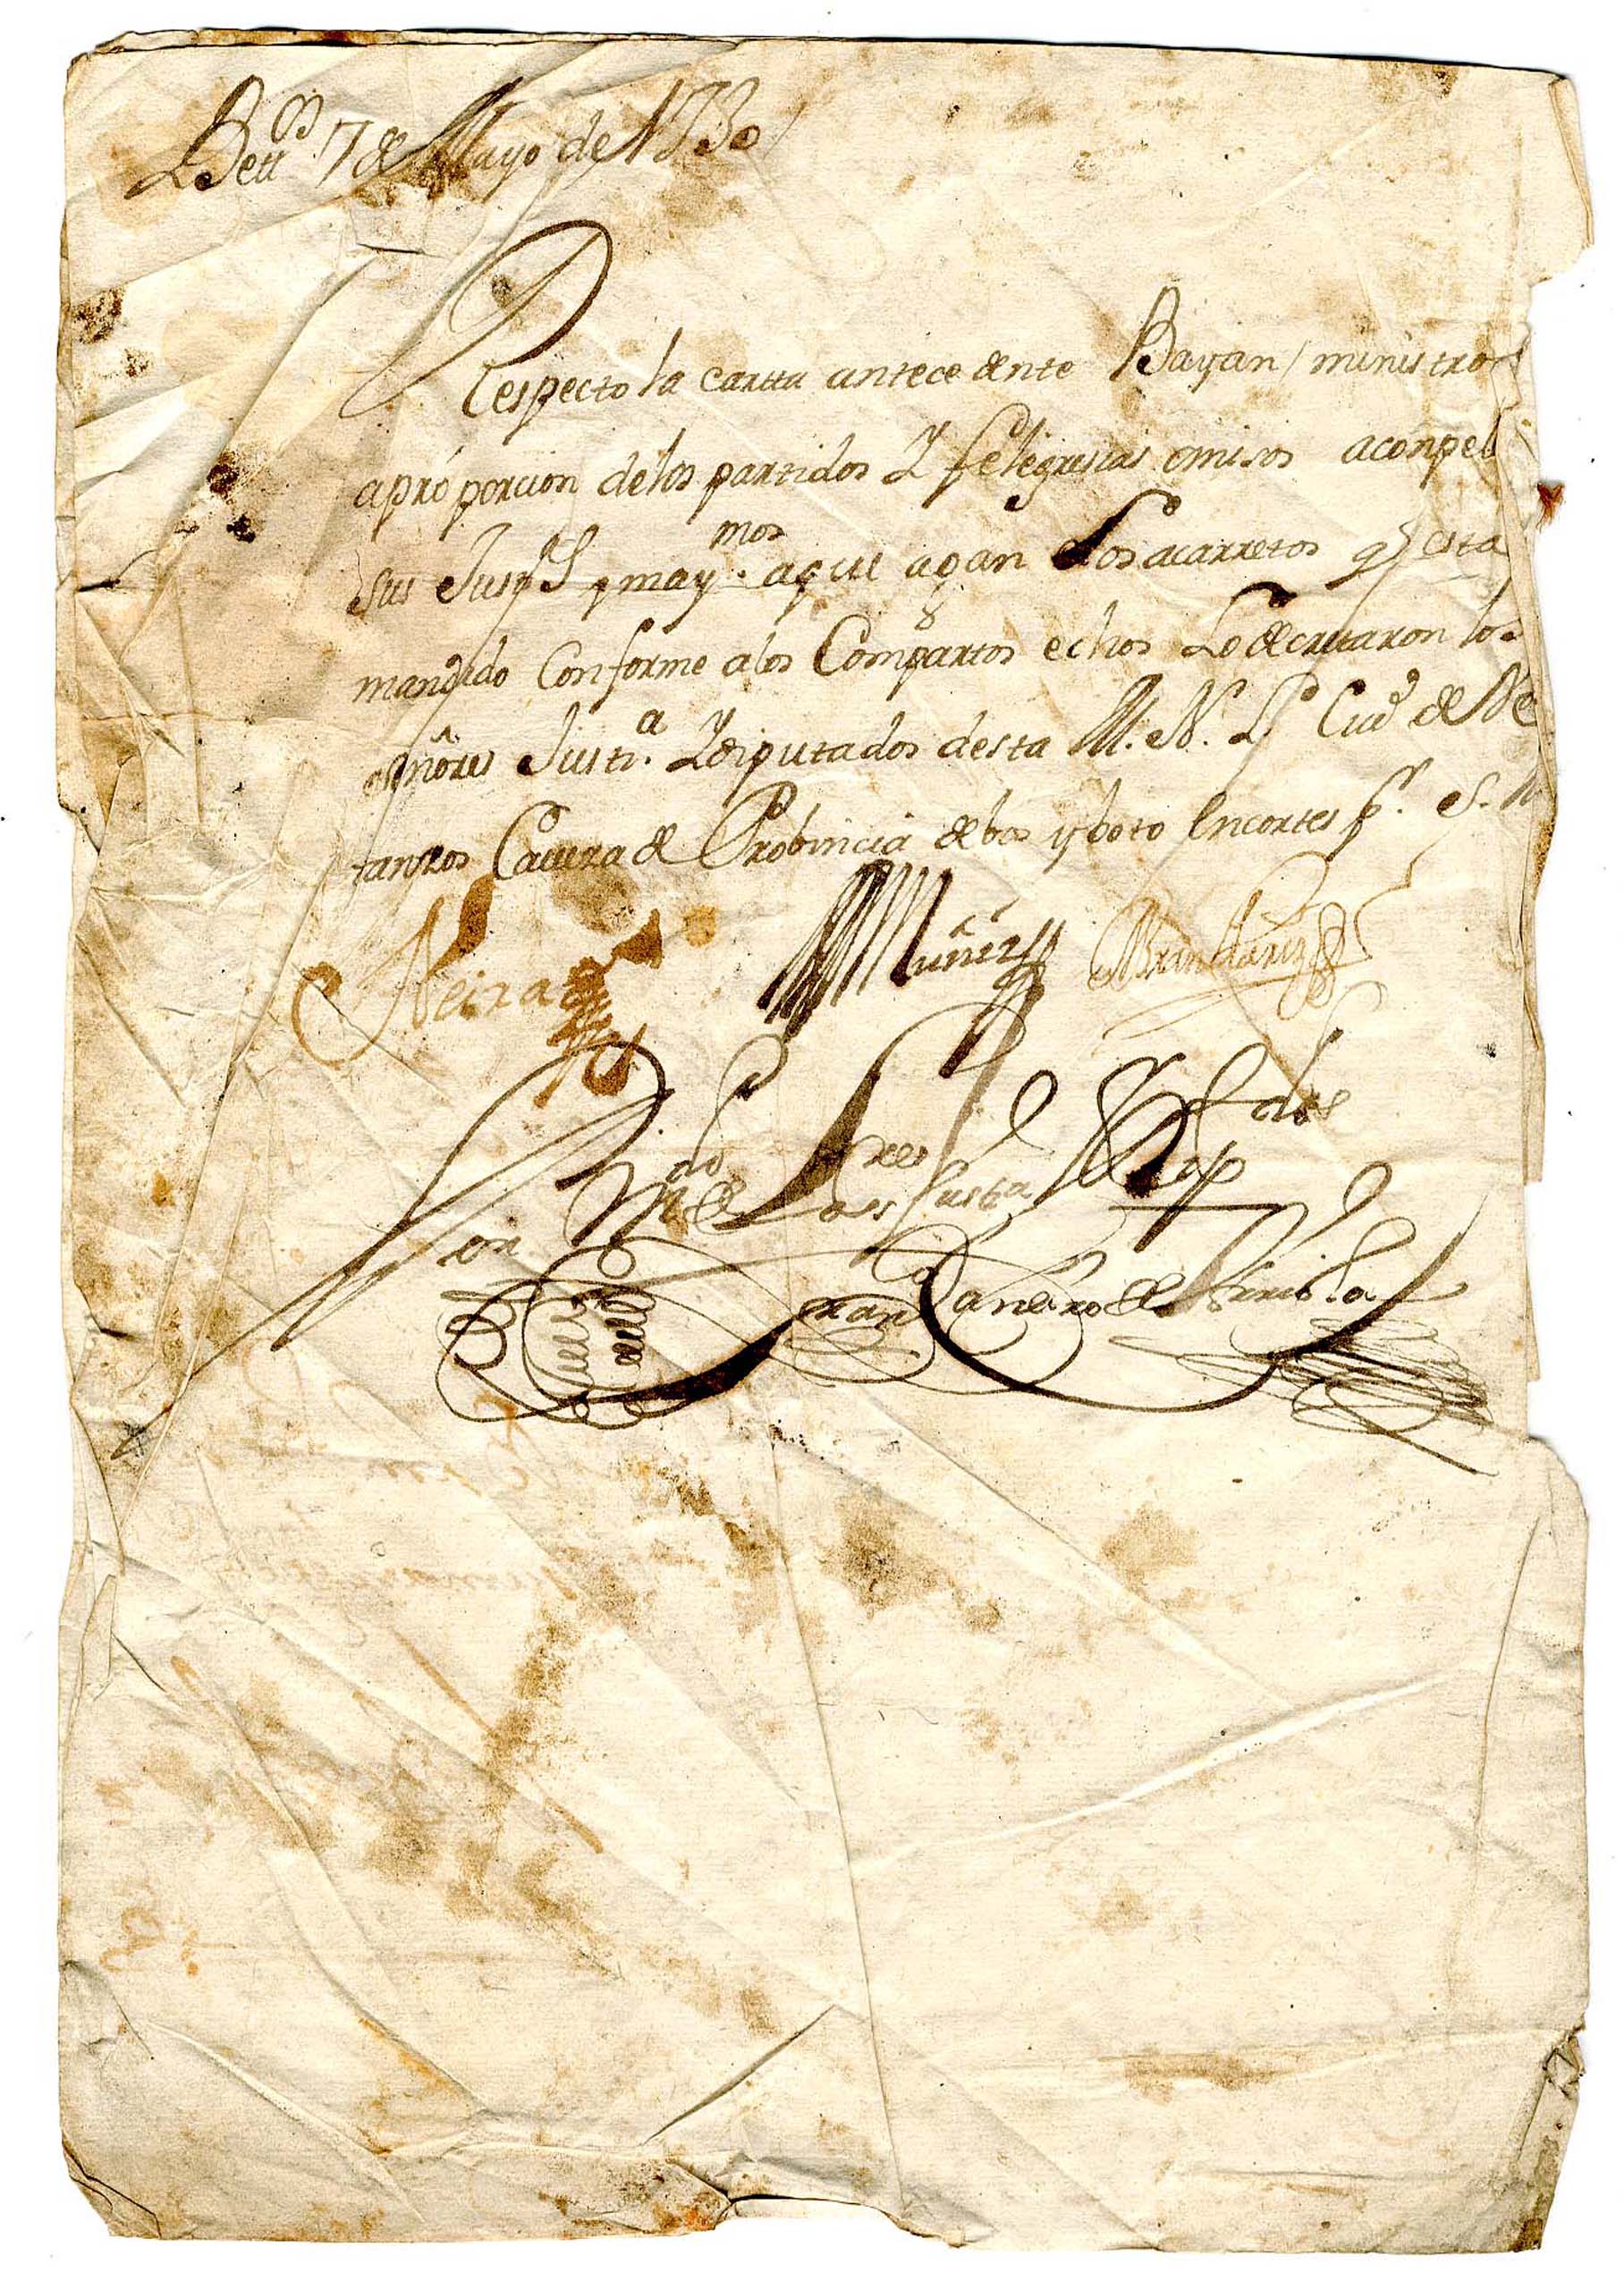 Bett.os 7 de Mayo de 1730
Respecto la cartta antecedente Bayan ministros
apróporcion delos partidos Y feligresias omisos aconpeler
sus Jusps y may.mos aque agan los acarretos q esta
mandado Conforme alos Compartos echos Lo decretaron los
señores Justi.a Y diputados desta M. N. L. Ciud de Be
tanzos Cavera de Probincia de bos y boto en cortes p.r S. M
Neira Muñiz Brandariz
Por m.do de Los ss.res Justa y Dip.tados
Fran Daneiro de